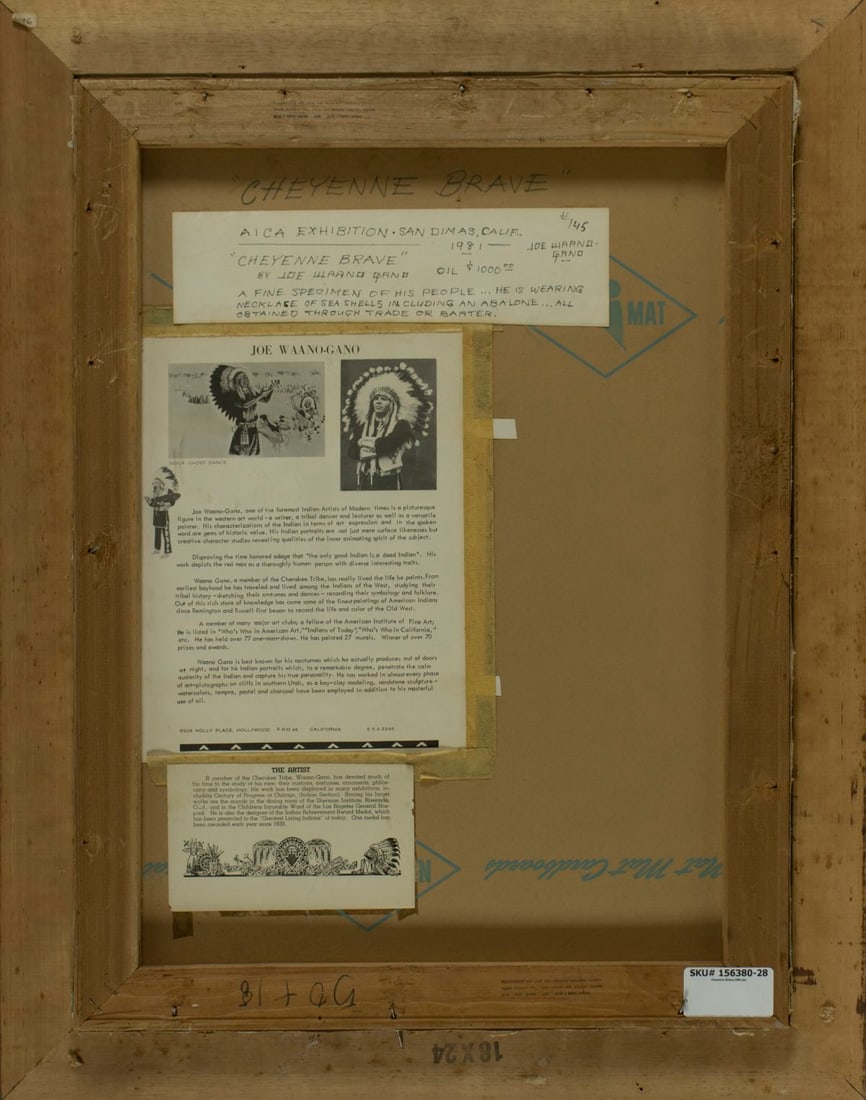 "CHEYENNE BRAVE"
#145
AICA EXHIBITION · SAN DIMAS, CALIF.
1981 — JOE WAANO-
GANO
"CHEYENNE BRAVE"
BY JOE WAANO GANO OIL $1000.00
A FINE SPECIMEN OF HIS PEOPLE ... HE IS WEARING
NECKLACE OF SEA SHELLS INCLUDING AN ABALONE ... ALL
OBTAINED THROUGH TRADE OR BARTER.
MAT
JOE WAANO-GANO
SIOUX GHOST DANCE
Joe Waano-Gano, one of the foremost Indian Artists of Modern times is a picturesque
figure in the western art world - a writer, a tribal dancer and lecturer as well as a versatile
painter. His characterizations of the Indian in terms of art expression and in the spoken
word are gems of historic value. His Indian portraits are not just mere surface likenesses but
creative character studies revealing qualities of the inner animating spirit of the subject.
Disproving the time honored adage that "the only good Indian is a dead Indian". His
work depicts the red man as a thoroughly human person with diverse interesting traits.
Waano Gano, a member of the Cherokee Tribe, has really lived the life he paints. From
earliest boyhood he has traveled and lived among the Indians of the West, studying their
tribal history - sketching their costumes and dances - recording their symbology and folklore.
Out of this rich store of knowledge has come some of the finest paintings of American Indians
since Remington and Russell first began to record the life and color of the Old West.
A member of many major art clubs; a fellow of the American Institute of Fine Art;
He is listed in "Who's Who in American Art," "Indians of Today", "Who's Who in California,"
etc. He has held over 77 one-man-shows. He has painted 27 murals. Winner of over 70
prizes and awards.
Waano Gano is best known for his nocturnes which he actually produces out of doors
at night, and for his Indian portraits which, to a remarkable degree, penetrate the calm
austerity of the Indian and capture his true personality. He has worked in almost every phase
of art - pictographs on cliffs in southern Utah, as a boy - clay modeling, sandstone sculpture -
watercolors, tempra, pastel and charcoal have been employed in addition to his masterful
use of oil.
HOLLY PLACE, HOLLYWOOD CALIFORNIA
THE ARTIST
A member of the Cherokee Tribe, Waano-Gano, has devoted much of
his time to the study of his race: their customs, costumes, ornaments, philos-
ophy and symbology. His work has been displayed in many exhibitions, in-
cluding Century of Progress at Chicago, (Indian Section). Among his larger
works are the murals in the dining room of the Sherman Institute, Riverside,
Calif., and in the Childrens Incurable Ward of the Los Angeles General Hos-
pital. He is also the designer of the Indian Achievement Award Medal, which
has been presented to the "Greatest Living Indians" of today. One medal has
been awarded each year since 1933.
Nat Mat Cardboards
SKU# 156380-28
18X24